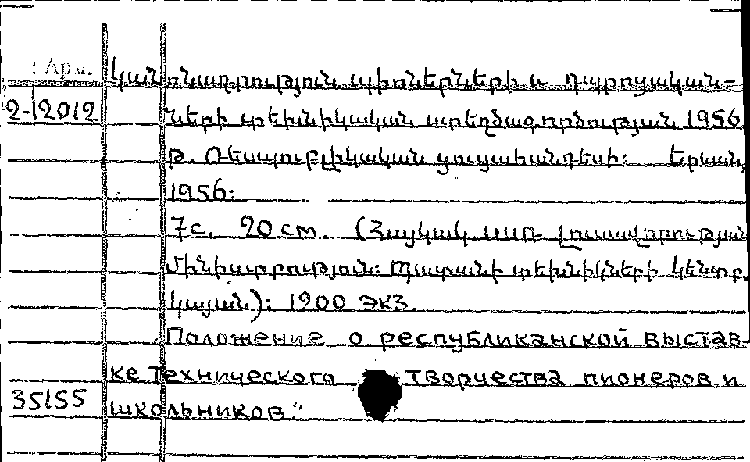 Арм. Կանոնադրություն պիոներների և դպրոցական-
2-12012 ների տեխնիկական ստեղծագործության 1956
թ. Ռեսպուբլիկական ցուցահանդեսի: Երևան,
1956:
7с. 20 cm. (Հայկակ. ՍՍՌ լուսավորության
մինիստրություն: Պատանի տեխնիկների կենտր.
կայան): 1200 экз.
Положение о республиканской выстав-
ке технического творчества пионеров и
35155 школьников."